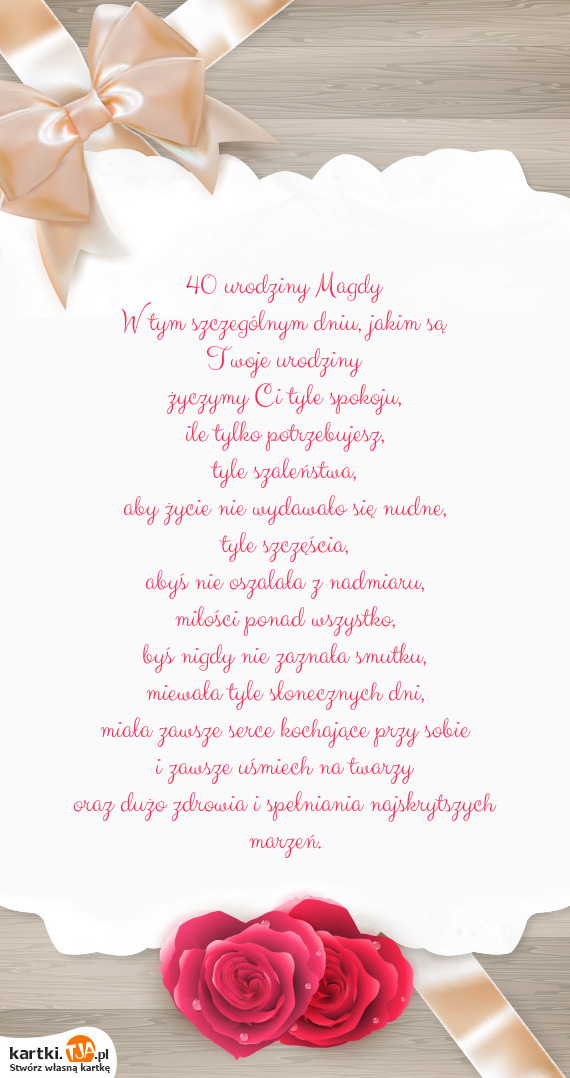 40 urodziny Magdy
W tym szczególnym dniu, jakim są
Twoje urodziny
życzymy Ci tyle spokoju,
ile tylko potrzebujesz,
tyle szaleństwa,
aby życie nie wydawało się nudne,
tyle szczęścia,
abyś nie oszalała z nadmiaru,
miłości ponad wszystko,
byś nigdy nie zaznała smutku,
miewała tyle słonecznych dni,
miała zawsze serce kochające przy sobie
i zawsze uśmiech na twarzy
oraz dużo zdrowia i spełniania najskrytszych
marzeń.
kartki.TJA.pl
Stwórz własną kartkę